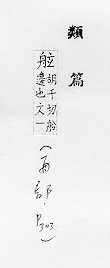 類篇
舷胡千切船
邊也文一
(舟部·P303)